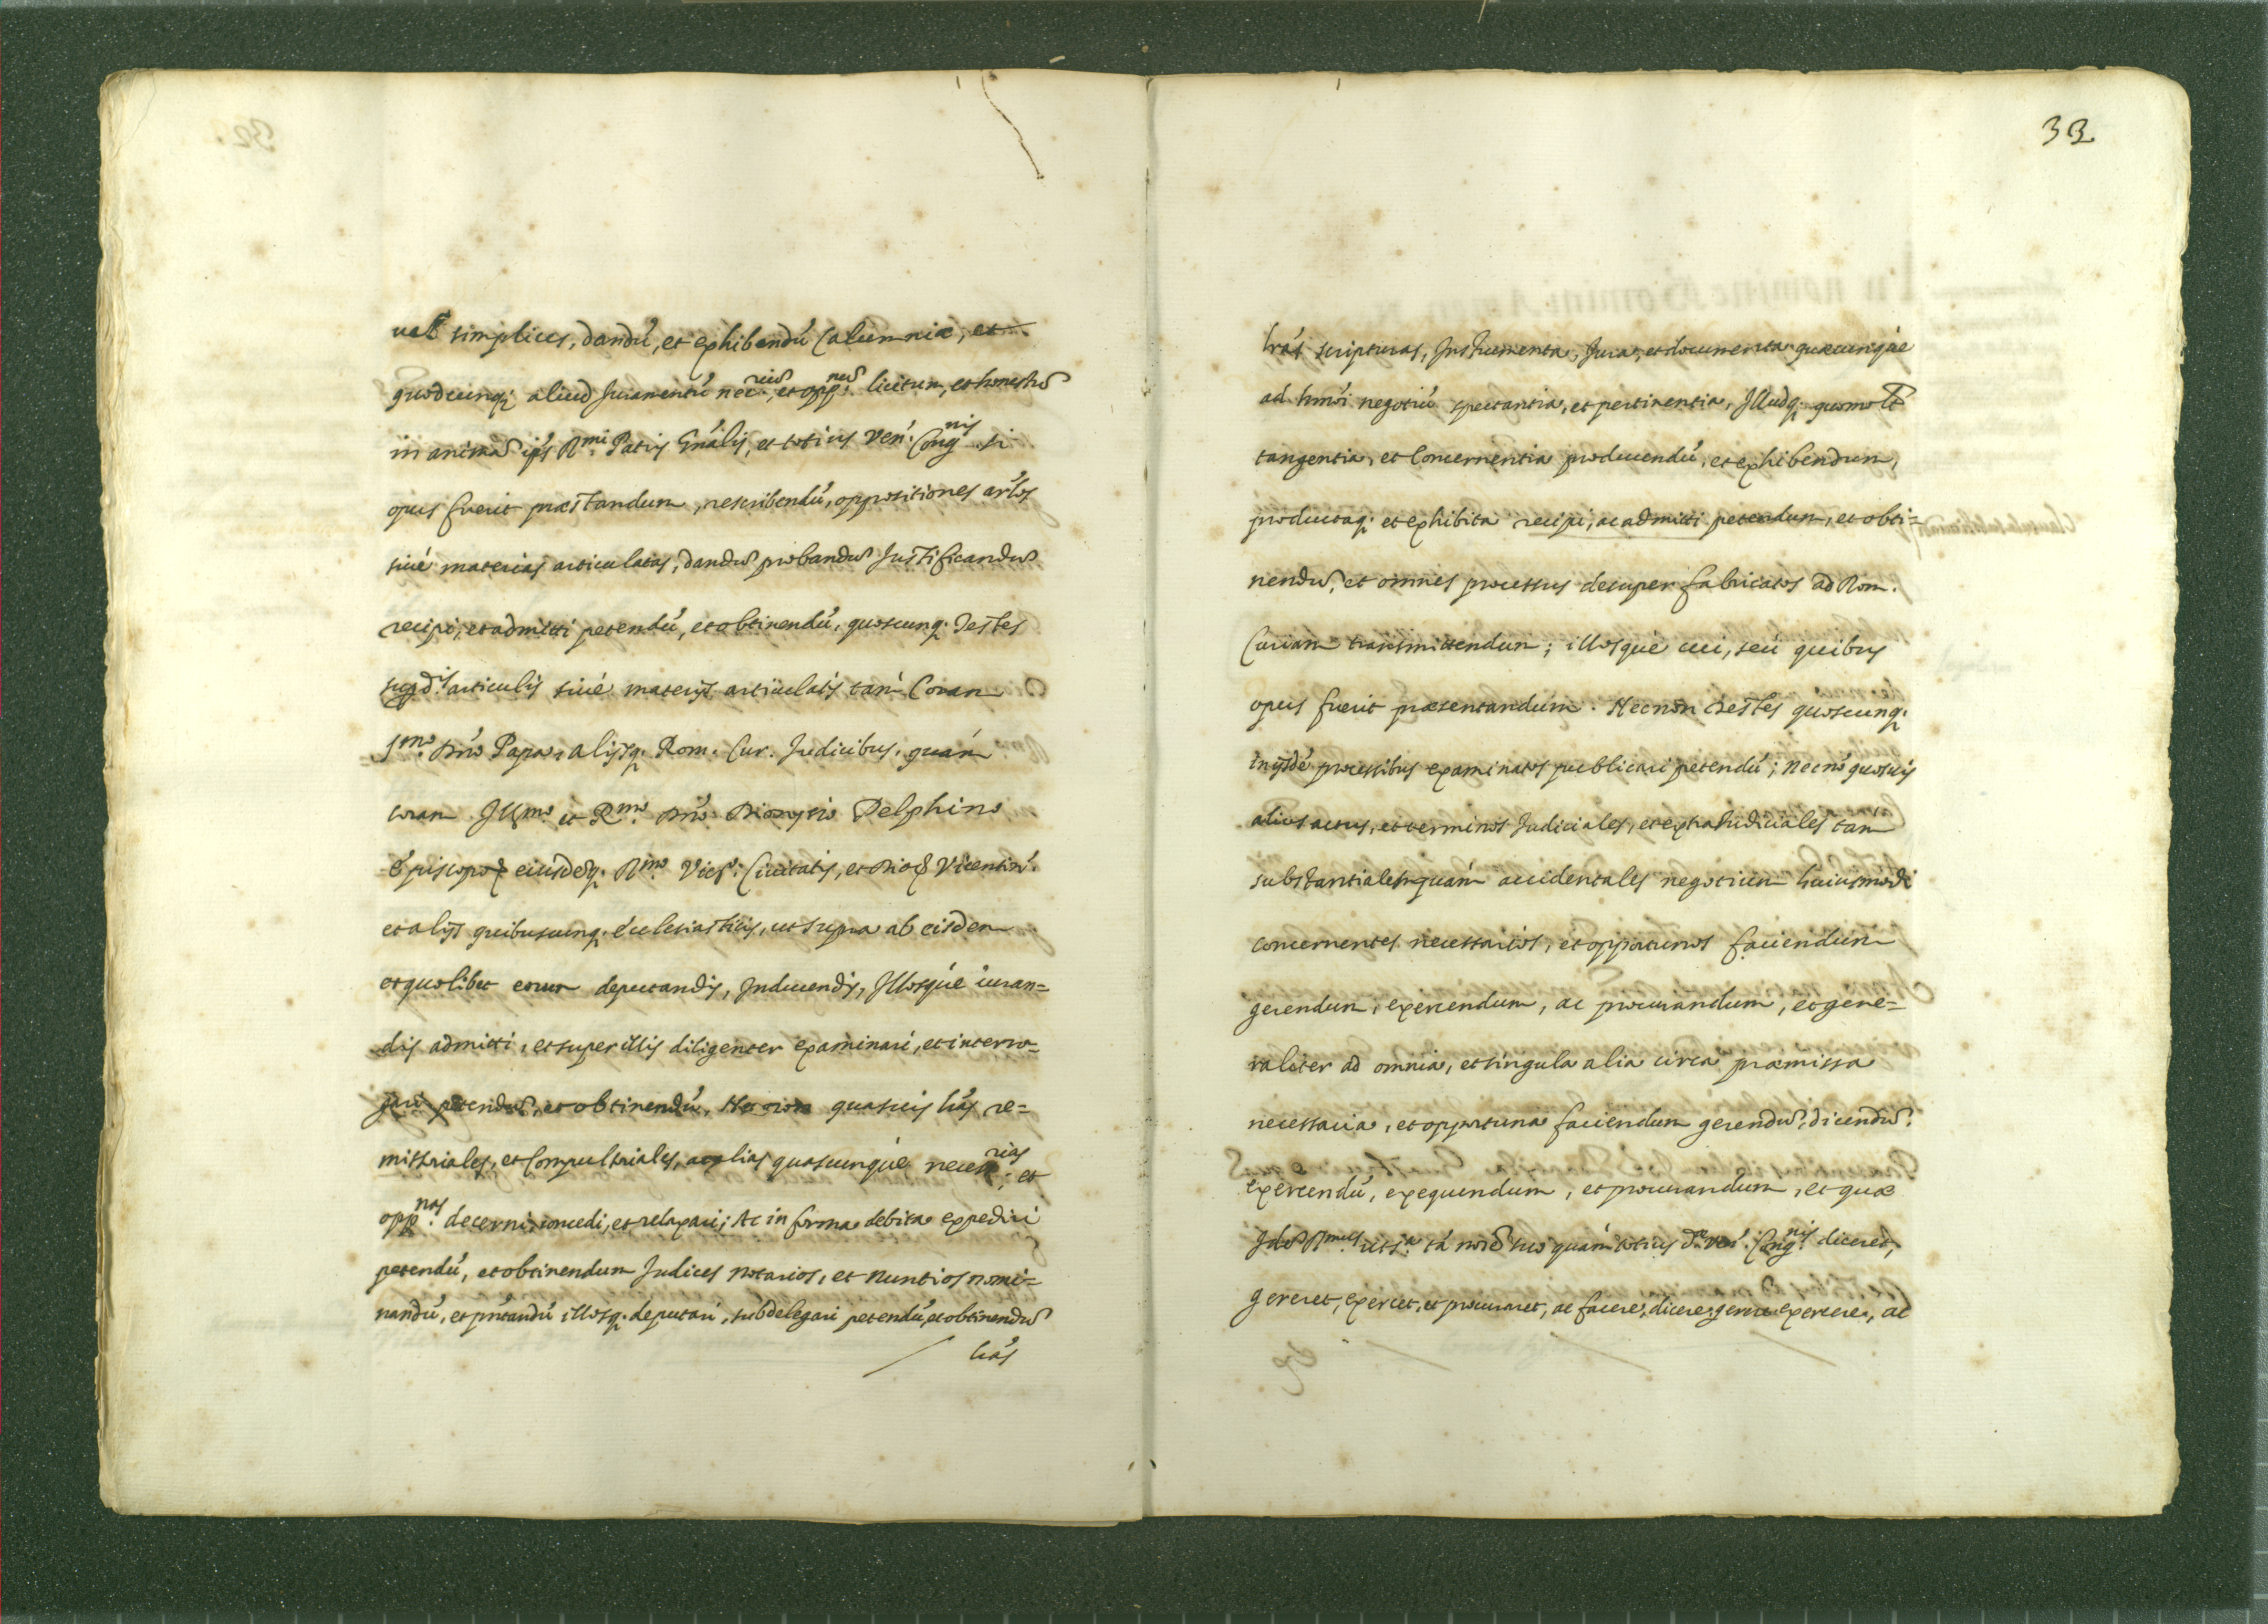 uel simplices, dandú, et exhibendú Calumniæ, et
quodcunq; aliud Juramentú nec.rium, et opp.num licitum, et honestũ
in animã ips Rmi Patris Gnális, et totius Ven. Congnis si
opus fuerit præstandum, rescribendú, oppositiones artos
siué materias articulatas, dandũ probandũ Justificandũ
recipi, et admitti petendú, et obtinendú, quoscunq. Testes
supdis articulis siué materijs articulatis tam Coram
Smo Dnó Papa, alijsq. Rom. Cur. Judicibus, quám
coram Illmo et Rmo Dnó Dionysio Delphino
Episcopo eiusdẽq. Rmo Vic. Ciuitatis, et Dioc Vicentin.
et alijs quibuscunq. Ecclesiasticis, ut supra ab eisdem
et quolibet eorum deputandis, Inducendis, Illosqué iuran=
dis admitti, et super illis diligenter examinari, et interro=
gari petendũ, et obtinendú, Nec non quasuis lrás re=
missoriales, et Compulsoriales, ac alias quascunqué necess.rias, et
opp.nas decerni, concedi, et relaxari; Ac in forma debita expediri
petendú, et obtinendum Judices Notarios, et Nuntios nomi=
nandú, et pntandú illosq. deputari, subdelegari petendú, et obtinendũ
lrás
33
lrás scripturas, Instrumenta, Jura, et documenta quæcunqúe
ad hmói negotiú spectantia, et pertinentia, Illudq. quomolt
tangentia, et Concernentia producendú, et exhibendum,
productaq. et exhibita recipi, ac admitti petendum, et obti=
nendũ, et omnes processus desuper fabricatos ad Rom.
Curiam transmittendum; illosqué cui, seú quibus
opus fuerit præsentandum. Necnon Testes quoscunq.
in ijsdẽ processibus examinatos publicari petendú; necnõ quosuis
alios actus, et terminos Judiciales, et extraJudiciales tam
substantiales quám accidentales negotium huiusmodi
concernentes necessarios, et opportunos faciendum
gerendum, exercendum, ac procurandum, et gene=
raliter ad omnia, et singula alia circa præmissa
necessaria, et opportuna faciendum gerendũ, dicendũ,
exercendú, exequendum, et procurandum, et quæ
Idẽ Rmus ut sa tá noĩe suo quám totius dæ Ven. Congnis diceret,
gereret, exercet, et procuraret, ac facere, dicere, gerere exercere, ac